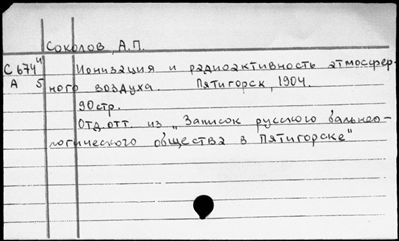 Соколов, А.П.
С674и Ионизация и радиоактивность атмосфер-
А 5 ного воздуха. Пятигорск, 1904.
90стр.
Отд.отт. из „Записок русского бальнео-
логического общества в Пятигорске"